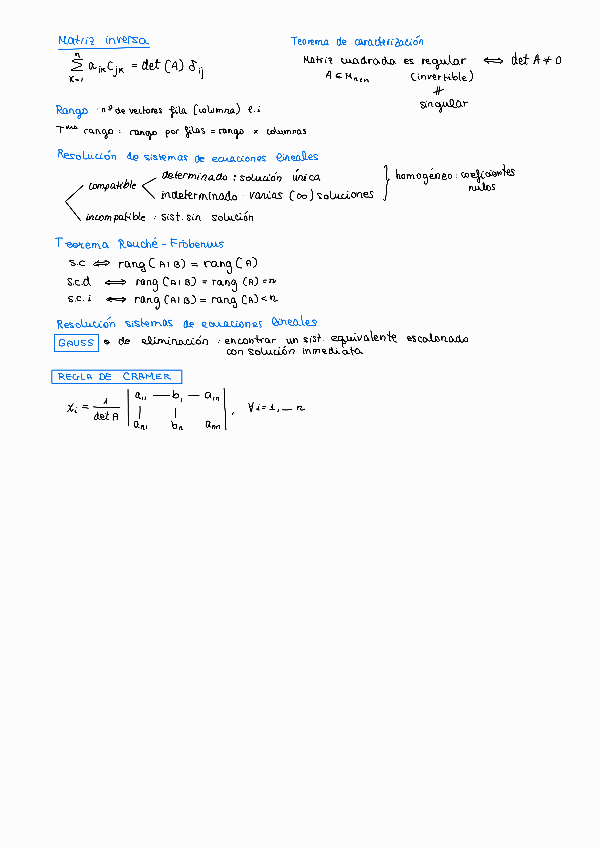 Matriz inversa
n
Σ aᵢₖ Cⱼₖ = det (A) δᵢⱼ
K=1
Teorema de caracterización
Matriz cuadrada es regular ⟺ det A ≠ 0
A ∈ Mₙₓₙ (invertible)
≠
singular
Rango : nº de vectores fila (columna) l.i
Tᵐᵃ rango : rango por filas = rango x columnas
Resolución de sistemas de ecuaciones lineales
compatible < determinado : solución única
indeterminado : varias (∞) soluciones
} homogéneo : coeficientes nulos
incompatible : sist. sin solución
Teorema Rouché - Fröbenius
s.c ⟺ rang (A|B) = rang (A)
s.c.d ⟺ rang (A|B) = rang (A) = n
s.c.i ⟺ rang (A|B) = rang (A) < n
Resolución sistemas de ecuaciones lineales
GAUSS • de eliminación : encontrar un sist. equivalente escalonado
con solución inmediata
REGLA DE CRAMER
xᵢ = 1/det A | a₁₁ — b₁ — a₁ₙ |
| aₙ₁ bₙ aₙₙ | , ∀ i = 1, — n